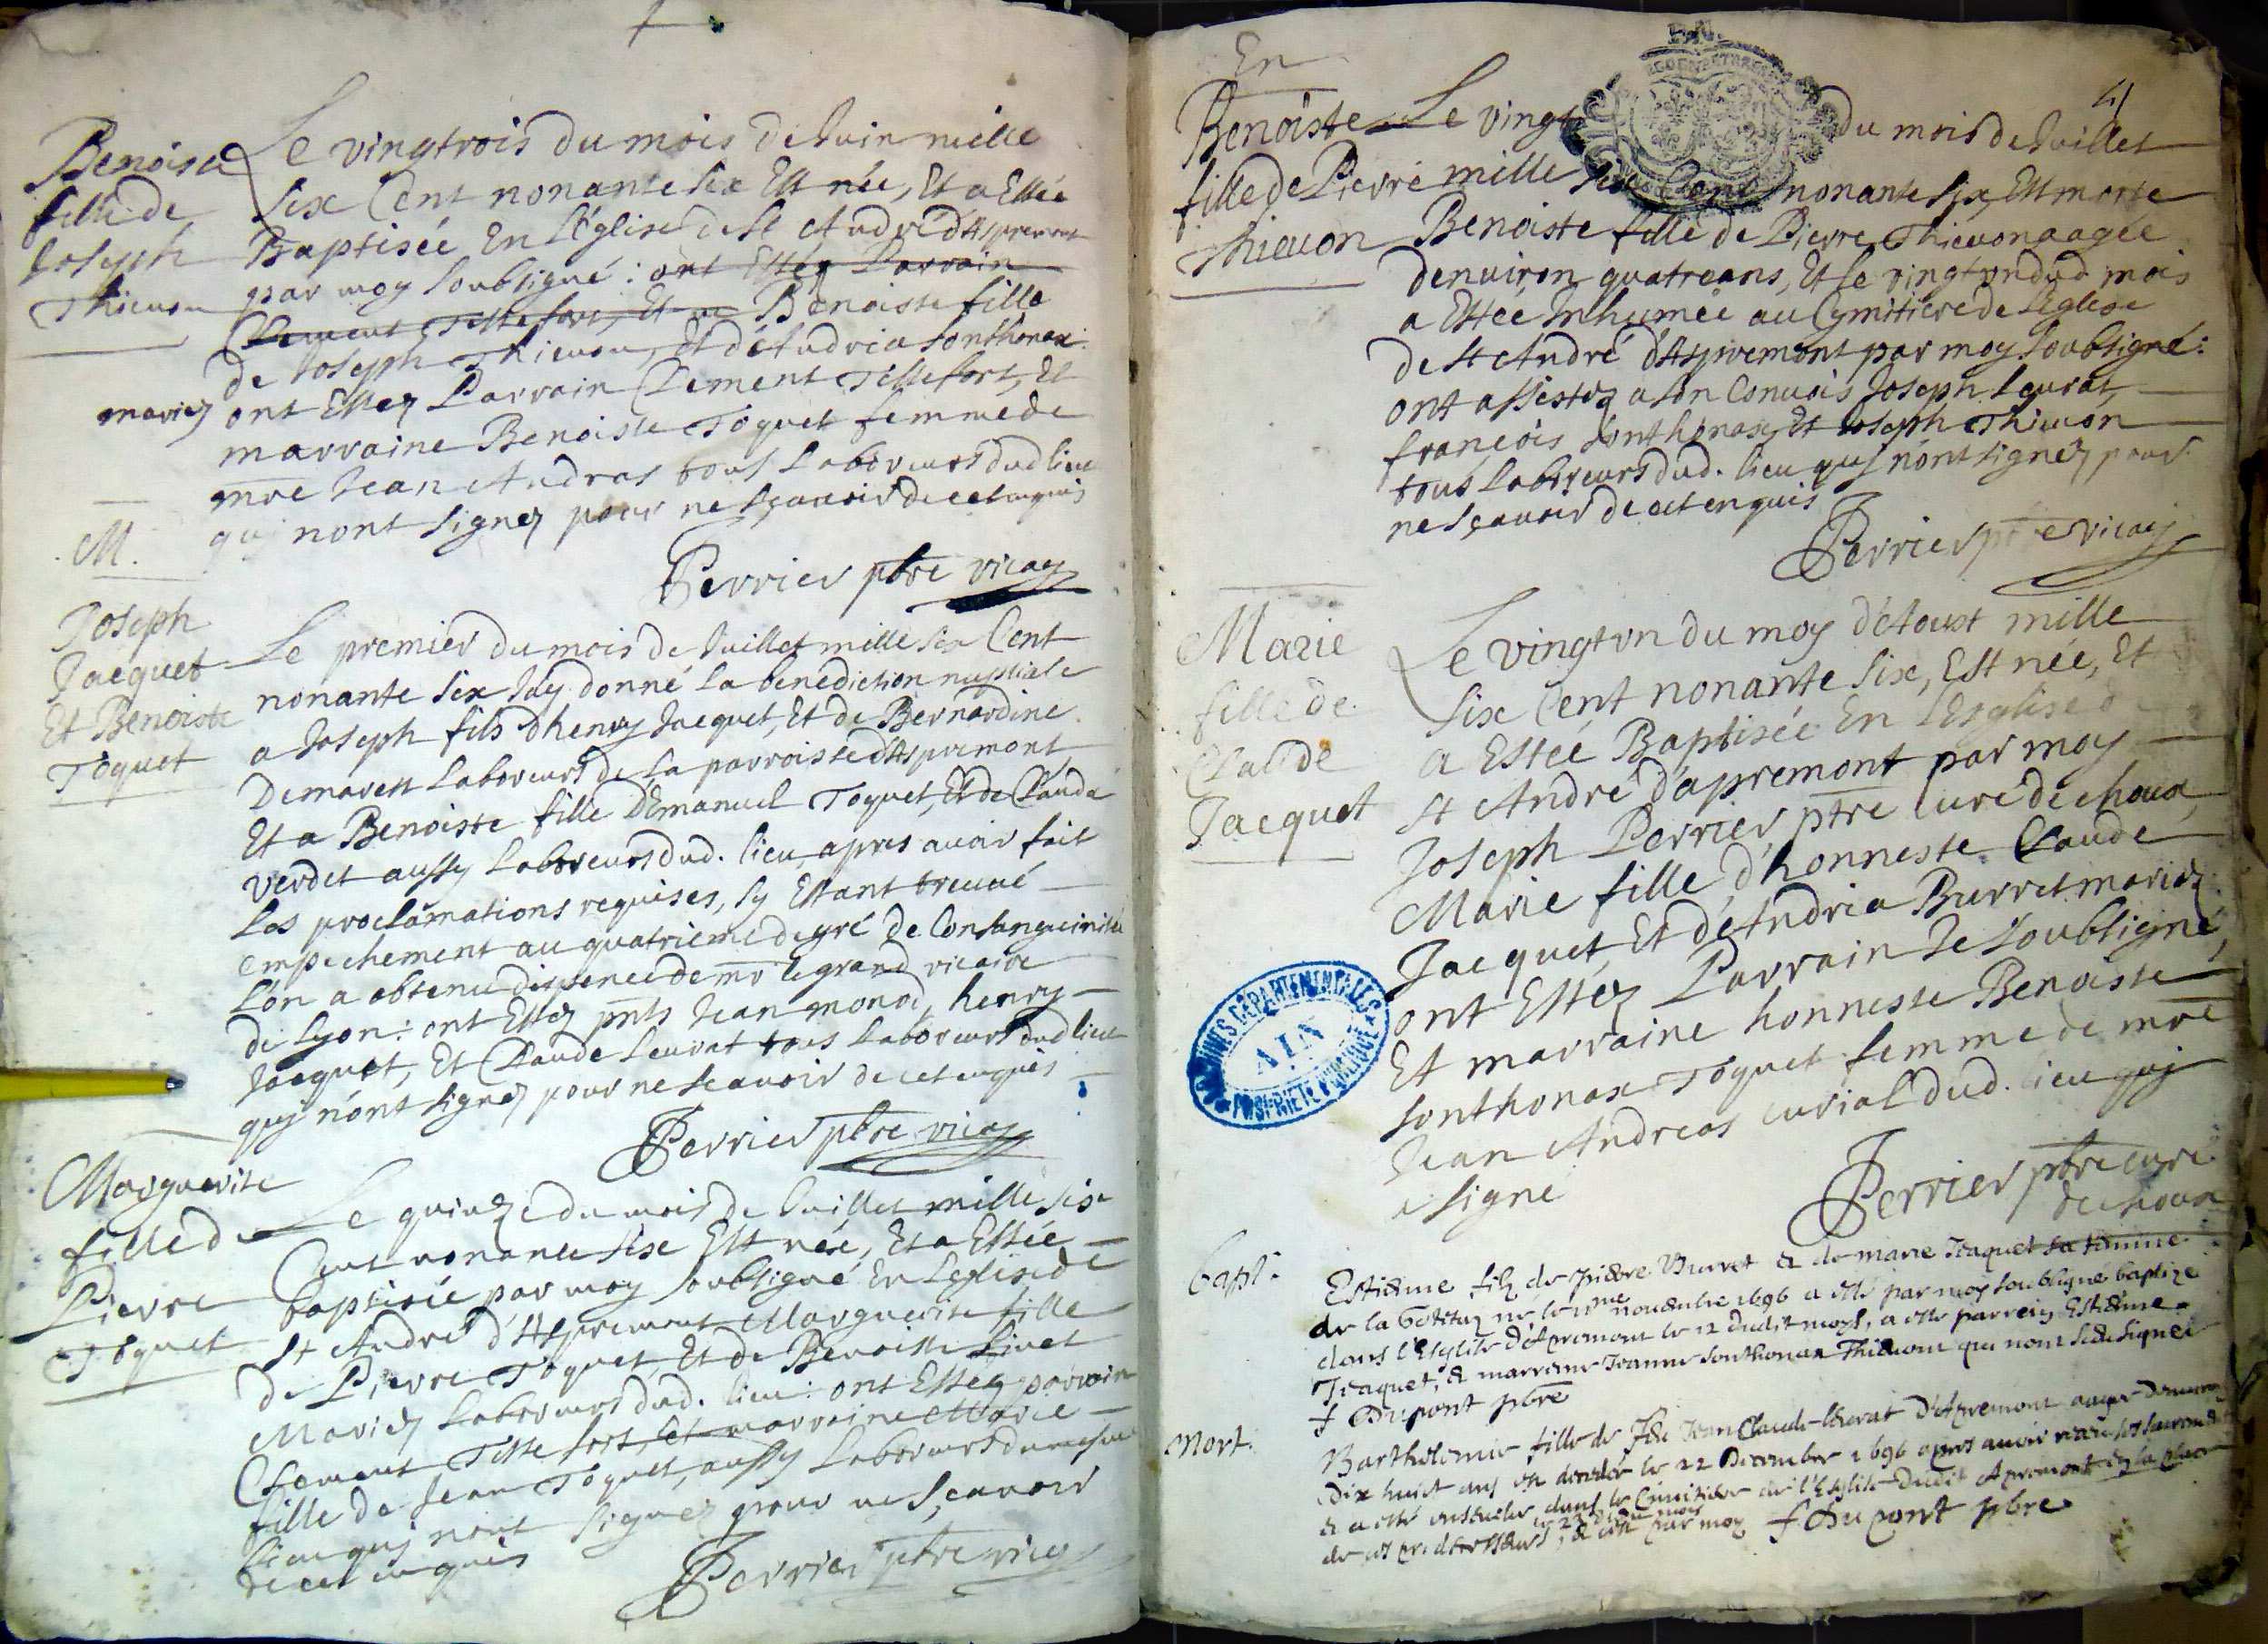 Benoiste
fille de
Joseph
Thieuon
Le vingtrois du mois de Juin mille
six Cent nonante six Est née, Et a Estée
Baptisée En l'Eglise de St André d'Aspremont
par moy soubsigné : ont Estez Parrain
Clement Tissefort, Et Benoiste fille
de Joseph Thieuon, Et d'Andrea Sonthonax
mariez ont Estez Parrain Clement Tissefort, Et
marraine Benoiste Toquet femme de
mre Jean Andreas tous Laboreurs dud lieu
quj nont signez pour ne sçauoir de cet enquis
Perrier pbre vicaj
M.
Joseph
Jacquet
Et Benoiste
Toquet
Le premier du mois de Juillet mille six Cent
nonante six Jay donné la benediction nuptiale
a Joseph fils d'henry Jacquet, Et de Bernardine
Demarest Laboreurs de la parroisse d'Aspremont,
Et a Benoiste fille d'Emanuel Toquet, Et de Clauda
Verdet aussy Laboreurs dud. lieu, apres auoir fait
Les proclamations requises, sy Estant treuué
empechement au quatrieme degré de Consanguinité
L'on a obtenu dispence de mr le grand vicaire
de Lyon : ont Estez pnts Jean monod, henry
Jacquet, Et Claude Leurat tous Laboreurs dud lieu
quj n'ont signez pour ne scauoir de cet enquis
Perrier pbre vicaj
Marguerite
fille de
Pierre
Toquet
Le quinze du mois de Juillet mille six
Cent nonante six Est née, Et a Estée
baptisée par moy soubsigné En Leglise de
St André d'Aspremont Marguerite fille
de Pierre Toquet, Et de Benoiste Livet
Mariez Laboreurs dud. lieu : ont Estez parrain
Clement Tissefort, Et marraine Marie
fille de Jean Toquet, aussy Laboreurs du mesme
lieu quj nont signez pour ne sçauoir
de cet enquis
Perrier pbre vicaj
En
4
Benoiste
fille de Pierre
Thieuon
Le vingt du mois de Juillet
mille six Cent nonante six, Est morte
Benoiste fille de Pierre Thieuon aagée
denuiron quatre ans, Et le vingt vn dud mois
a Estée Inhumée au Cymitiere de l'Eglise
de St André d'Aspremont par moy soubsigné :
ont assistez a son Conuois Joseph Leurat,
françois Sonthonax, Et Joseph Thieuon
tous Laboreurs dud. lieu quj n'ont signez pour
ne sçauoir de cet enquis
Perrier ptre vicaj
Marie
fille de
Claude
Jacquet
Le vingt vn du moy d'Aoust mille
six Cent nonante six, Est née, Et
a Estée Baptisée En L'Esglise de
St André d'apremont par moy
Joseph Perrier, ptre curé de choux,
Marie fille d'honneste Claude
Jacquet, Et d'Andrea Burret mariez
ont Estez Parrain Le soubsigné,
Et marraine honneste Benoiste
Sonthonax Toquet femme de mre
Jean Andreas curial dud. lieu quj
a signé
Perrier pbre curé
de choux
ARCHIVES DÉPARTEMENTALES
AIN
PROPRIÉTÉ PUBLIQUE
bapt.
Estienne filz de Pierre Burret & de marie Jcaquet sa femme
de la né le nouembre 1696 a esté par moy soubsigné baptize
dans l'Esglise d'Apremont le 12 dudit moys, a esté parrein Estienne
Jcaquet, & marrene Jeanne Sonthonax Thieuont qui nont sceu signer
f Dupont pbre
mort.
Bartholomie fille de feu Jean Claude Leurat d'Apremont aagée denuiron
dix huict ans est decedée le 22 Decembre 1696 apres auoir receu ses sacrements
& a esté enseuelie dans le Cimitiere de l'Esglise dudit Apremont en la place
le 23 dudit mois
de ses predecesseurs, & ce par moy f Dupont pbre